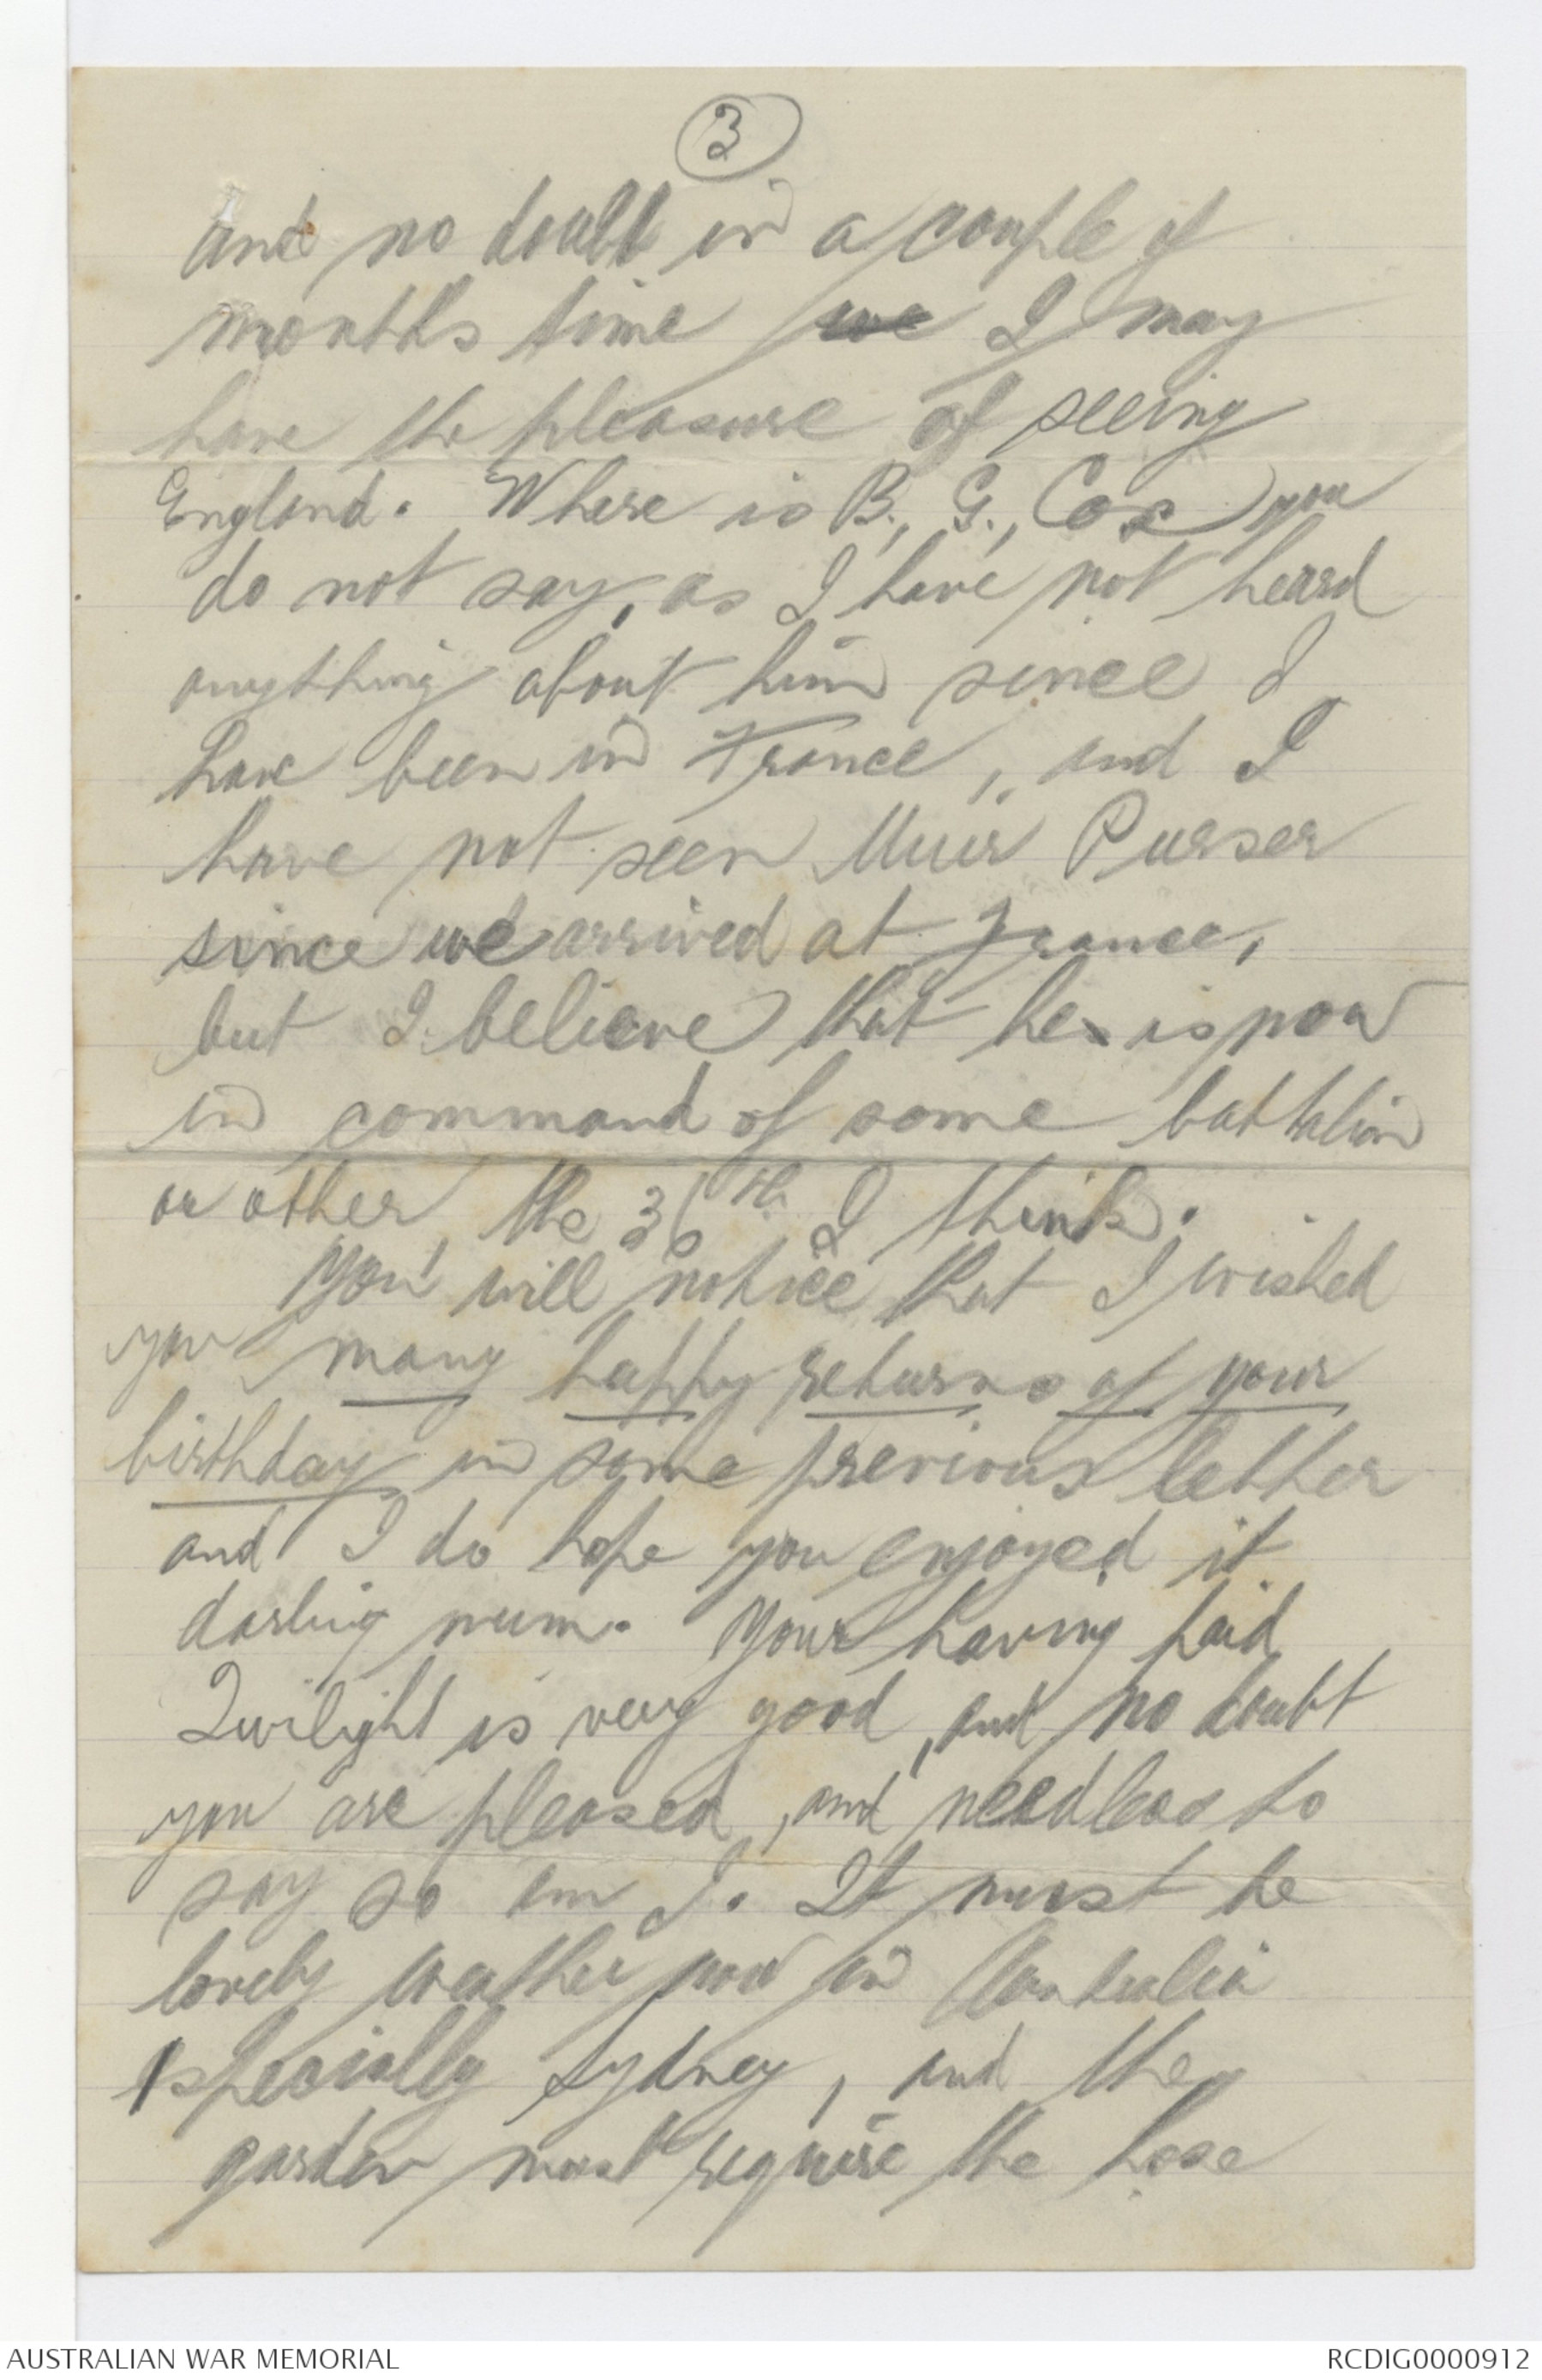 3
and no doubt in a couple of
months time we I may
have the pleasure of seeing
England. Where is B., G., Cox you
do not say, as I have not heard
anything about him since I
have been in France, and I
have not seen Muir Purser
since we arrived at France,
but I believe that he is now
in command of some battalion
or other, the 30th I think.
You will notice that I wished
you many happy returns of your
birthday in some previous letter
and I do hope you enjoyed it
darling mum. Your having paid
Twilight is very good, and no doubt
you are pleased, and needless to
say so am I. It must be
lovely weather now in Australia
especially Sydney, and the
garden must require the hose
AUSTRALIAN WAR MEMORIAL
RCDIG0000912